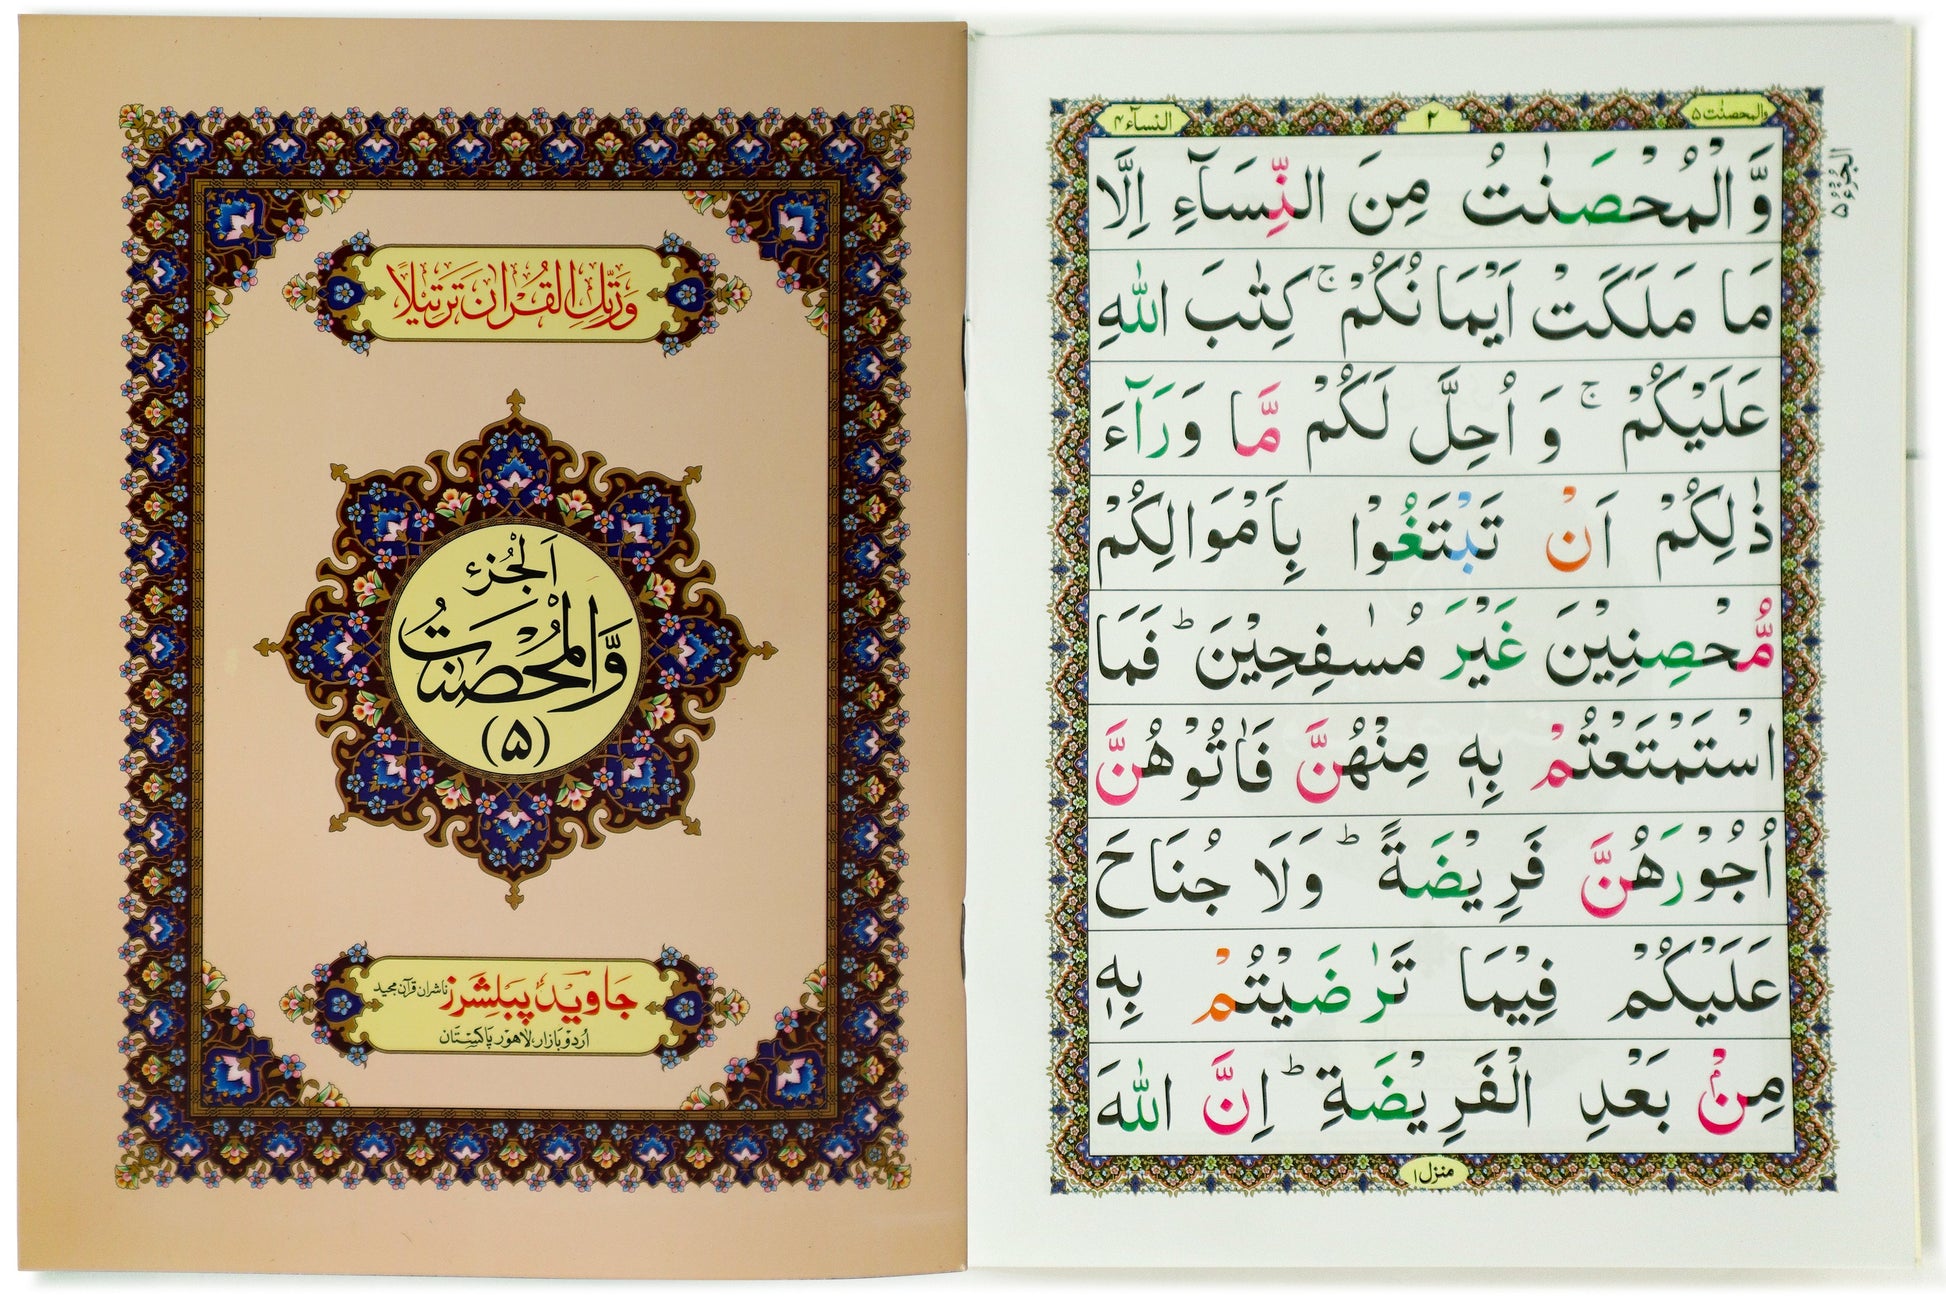 وَرَتِّلِ الْقُرْاٰنَ تَرْتِيْلًا
اَلْجُزْءُ
وَّالْمُحْصَنٰتُ
(۵)
جاوید پبلشرز ناشران قرآن مجید
اُردو بازار، لاہور پاکستان
النسآء ۴
۲
والمحصنٰت ۵
الجزء ۵
وَّ الْمُحْصَنٰتُ مِنَ النِّسَآءِ اِلَّا
مَا مَلَكَتْ اَيْمَانُكُمْ ۚ كِتٰبَ اللّٰهِ
عَلَيْكُمْ ۚ وَ اُحِلَّ لَكُمْ مَّا وَرَآءَ
ذٰلِكُمْ اَنْ تَبْتَغُوْا بِاَمْوَالِكُمْ
مُّحْصِنِيْنَ غَيْرَ مُسٰفِحِيْنَ ؕ فَمَا
اسْتَمْتَعْتُمْ بِهٖ مِنْهُنَّ فَاٰتُوْهُنَّ
اُجُوْرَهُنَّ فَرِيْضَةً ؕ وَلَا جُنَاحَ
عَلَيْكُمْ فِيْمَا تَرٰضَيْتُمْ بِهٖ
مِنْۢ بَعْدِ الْفَرِيْضَةِ ؕ اِنَّ اللّٰهَ
منزل ۱